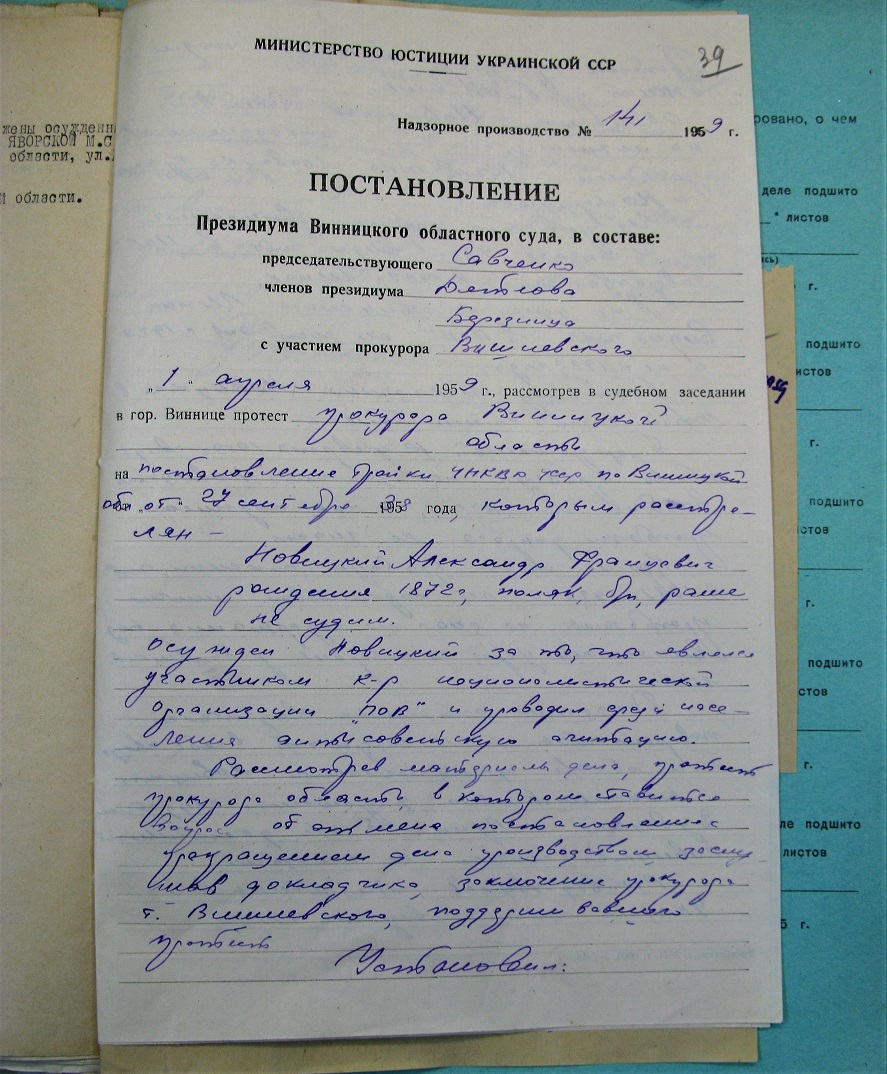 МИНИСТЕРСТВО ЮСТИЦИИ УКРАИНСКОЙ ССР
39
Надзорное производство № 141 1959 г.
ПОСТАНОВЛЕНИЕ
Президиума Винницкого областного суда, в составе:
председательствующего Савченко
членов президиума Детлова
Березница
с участием прокурора Вишневского
„1" апреля 1959 г., рассмотрев в судебном заседании
в гор. Виннице протест прокурора Винницкой
области
на постановление Тройки УНКВД УССР по Винницкой
обл „от" 27 сентября 1938 года, которым расстре-
лян –
Новицкий Александр Францевич
рождения 1872г, поляк, б/п, ранее
не судим.
Осужден Новицкий за то, что являлся
участником к-р националистической
организации "ПОВ" и проводил среди насе-
ления антисоветскую агитацию.
Рассмотрев материалы дела, протест
прокурора области, в котором ставится
вопрос об отмене постановления с
прекращением дела производством, заслу-
шав докладчика, заключение прокурора
т. Вишневского, поддержавшего
протест
Установил:
жены осужденн
ЯВОРСКОЙ М.С
области, ул.
й области.
ровано, о чем
деле подшито
листов
г.
подшито
листов
г.
подшито
стов
г.
подшито
стов
г.
ле подшито
листов
5 г.